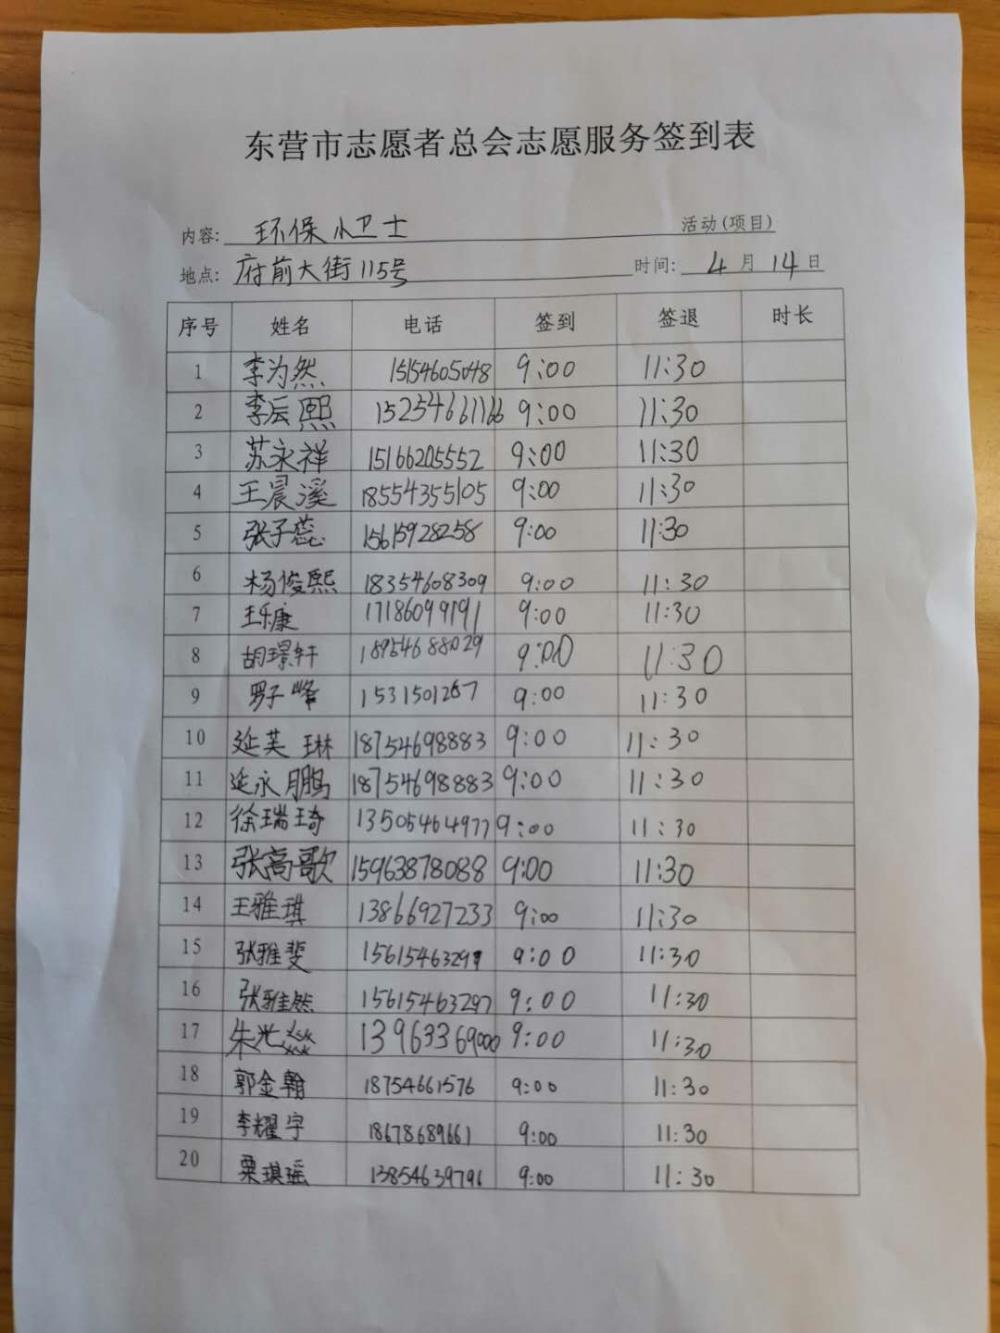 东营市志愿者总会志愿服务签到表
内容: 环保小卫士 活动(项目)
地点: 府前大街115号 时间: 4月14日
序号 姓名 电话 签到 签退 时长
1 李为然 15154605048 9:00 11:30
2 李辰熙 15254661166 9:00 11:30
3 苏永祥 15166205552 9:00 11:30
4 王晨溪 18554355105 9:00 11:30
5 张子蕊 15615928258 9:00 11:30
6 杨俊熙 18354608309 9:00 11:30
7 王乐康 17186099191 9:00 11:30
8 胡璟轩 18954688029 9:00 11:30
9 罗子峰 1531501267 9:00 11:30
10 延芙琳 18754698883 9:00 11:30
11 延永鹏 18754698883 9:00 11:30
12 徐瑞琦 13505464977 9:00 11:30
13 张高歌 15963878088 9:00 11:30
14 王雅琪 13866927233 9:00 11:30
15 张雅斐 15615463297 9:00 11:30
16 张雅然 15615463297 9:00 11:30
17 朱光燚 13963369000 9:00 11:30
18 郭金翰 18754661576 9:00 11:30
19 李耀宇 18678689661 9:00 11:30
20 栗琪瑶 13854639796 9:00 11:30